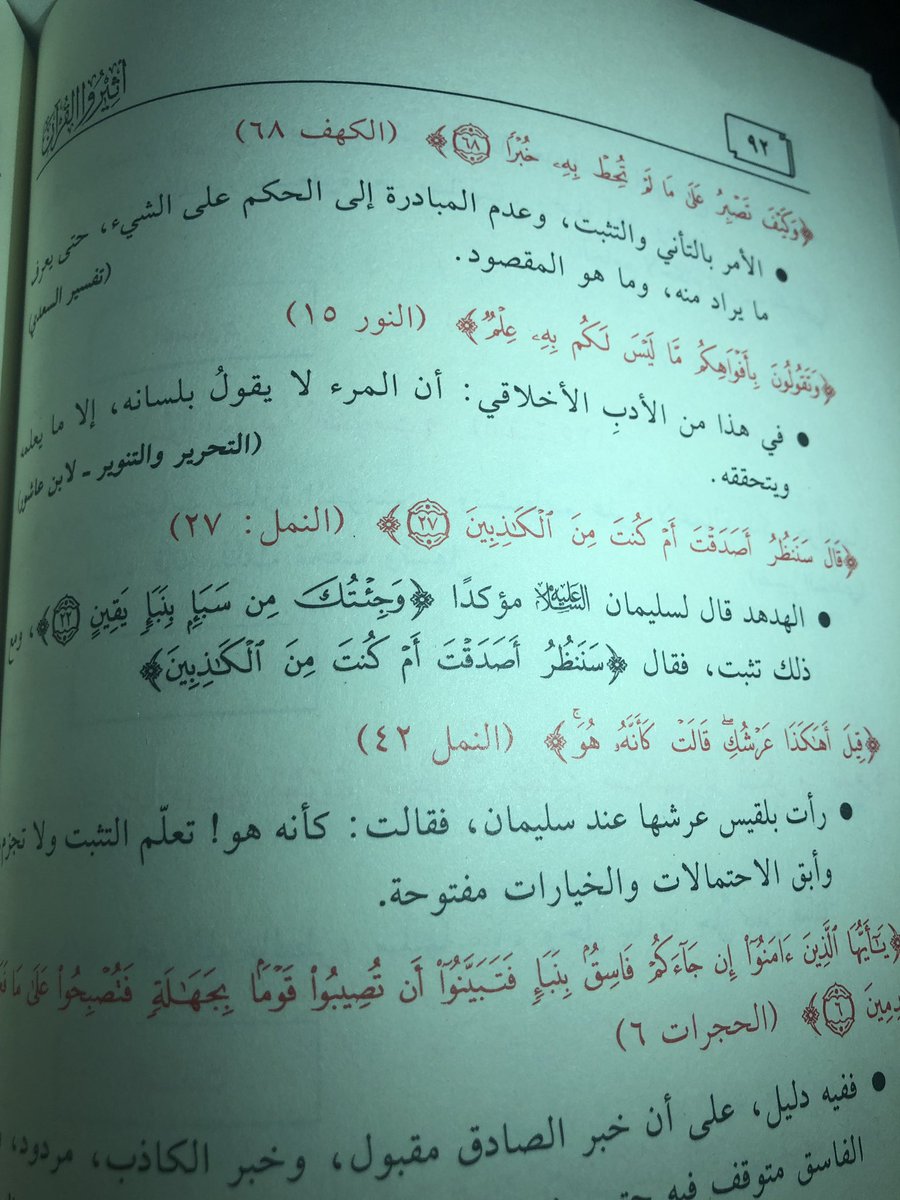 أثيروا القرآن
٩٢
﴿وَكَيْفَ تَصْبِرُ عَلَىٰ مَا لَمْ تُحِطْ بِهِۦ خُبْرًا ٦٨﴾ (الكهف ٦٨)
• الأمر بالتأني والتثبت، وعدم المبادرة إلى الحكم على الشيء، حتى يعرف
ما يراد منه، وما هو المقصود. (تفسير السعدي)
﴿وَتَقُولُونَ بِأَفْوَاهِكُم مَّا لَيْسَ لَكُم بِهِۦ عِلْمٌ﴾ (النور ١٥)
• في هذا من الأدبِ الأخلاقي: أن المرء لا يقولُ بلسانه، إلا ما يعلمه
ويتحققه. (التحرير والتنوير ـ لابن عاشور)
﴿قَالَ سَنَنظُرُ أَصَدَقْتَ أَمْ كُنتَ مِنَ ٱلْكَٰذِبِينَ ٢٧﴾ (النمل: ٢٧)
• الهدهد قال لسليمان عليه السلام مؤكدًا ﴿وَجِئْتُكَ مِن سَبَإٍۭ بِنَبَإٍ يَقِينٍ ٢٢﴾، ومع
ذلك تثبت، فقال ﴿سَنَنظُرُ أَصَدَقْتَ أَمْ كُنتَ مِنَ ٱلْكَٰذِبِينَ﴾
﴿قِيلَ أَهَٰكَذَا عَرْشُكِ ۖ قَالَتْ كَأَنَّهُۥ هُوَ ۚ﴾ (النمل ٤٢)
• رأت بلقيس عرشها عند سليمان، فقالت: كأنه هو! تعلّم التثبت ولا تجزم
وأبق الاحتمالات والخيارات مفتوحة.
﴿يَٰٓأَيُّهَا ٱلَّذِينَ ءَامَنُوٓا۟ إِن جَآءَكُمْ فَاسِقٌۢ بِنَبَإٍ فَتَبَيَّنُوٓا۟ أَن تُصِيبُوا۟ قَوْمًۢا بِجَهَٰلَةٍ فَتُصْبِحُوا۟ عَلَىٰ مَا
٦﴾ (الحجرات ٦)
• ففيه دليل، على أن خبر الصادق مقبول، وخبر الكاذب، مردود،
الفاسق متوقف فيه